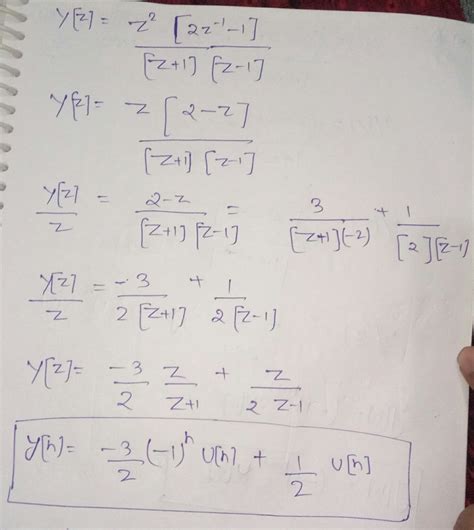 Y[z] = z² [2z⁻¹-1] / [z+1] [z-1]
Y[z] = z [2-z] / [z+1] [z-1]
Y[z] / z = 2-z / [z+1] [z-1] = 3 / [z+1](-2) + 1 / [2][z-1]
Y[z] / z = -3 / 2[z+1] + 1 / 2[z-1]
Y[z] = -3/2 z/z+1 + z / 2 z-1
y[n] = -3/2 (-1)ⁿ u[n] + 1/2 u[n]